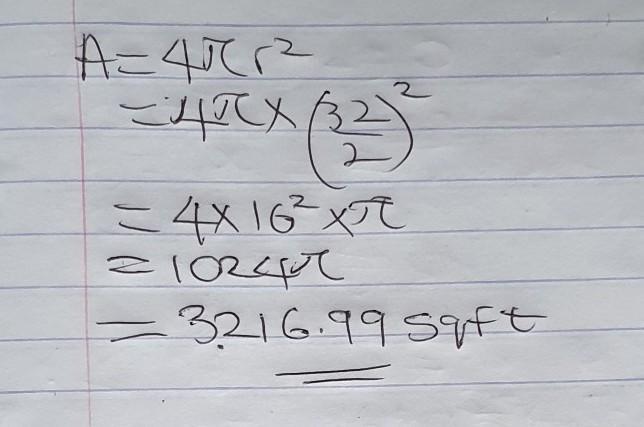 A = 4πr²
= 4π × (32/2)²
= 4 × 16² × π
= 1024π
= 3216.99 sqft